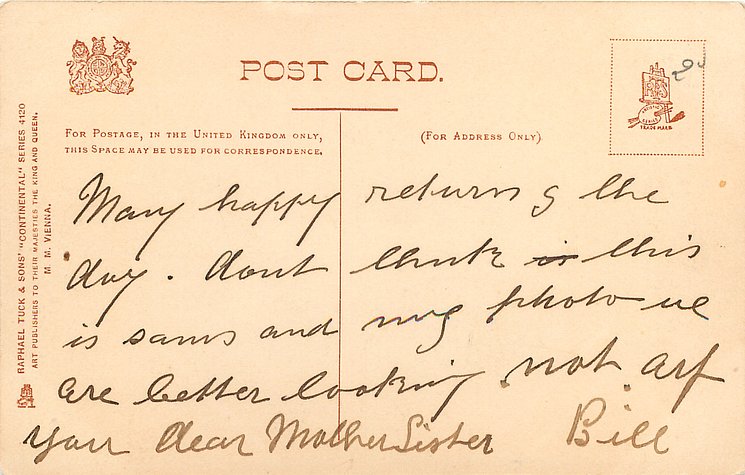 POST CARD.
FOR POSTAGE, IN THE UNITED KINGDOM ONLY,
THIS SPACE MAY BE USED FOR CORRESPONDENCE.
(FOR ADDRESS ONLY)
TRADE MARK
RAPHAEL TUCK & SONS' "CONTINENTAL" SERIES 4120
ART PUBLISHERS TO THEIR MAJESTIES THE KING AND QUEEN.
M. M. VIENNA.
Many happy returns of the
day. dont think is this
is sams and my photo we
are better looking. not arf
your dear Mother Sister Bill